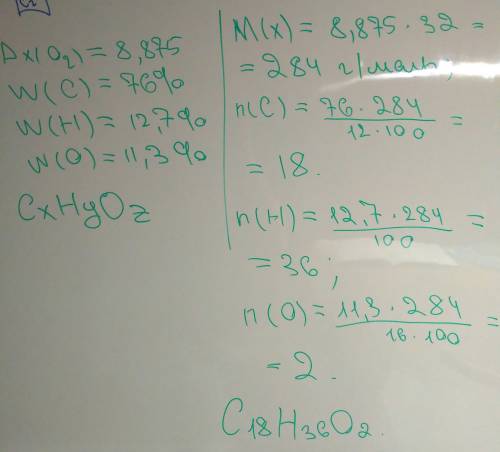 Dx(O₂) = 8,875
W(C) = 76%
W(H) = 12,7%
W(O) = 11,3%
CxHyOz
M(x) = 8,875 · 32 =
= 284 г/моль;
n(C) = 76 · 284 / 12 · 100 =
= 18.
n(H) = 12,7 · 284 / 100 =
= 36;
n(O) = 11,3 · 284 / 16 · 100 =
= 2.
C₁₈H₃₆O₂.